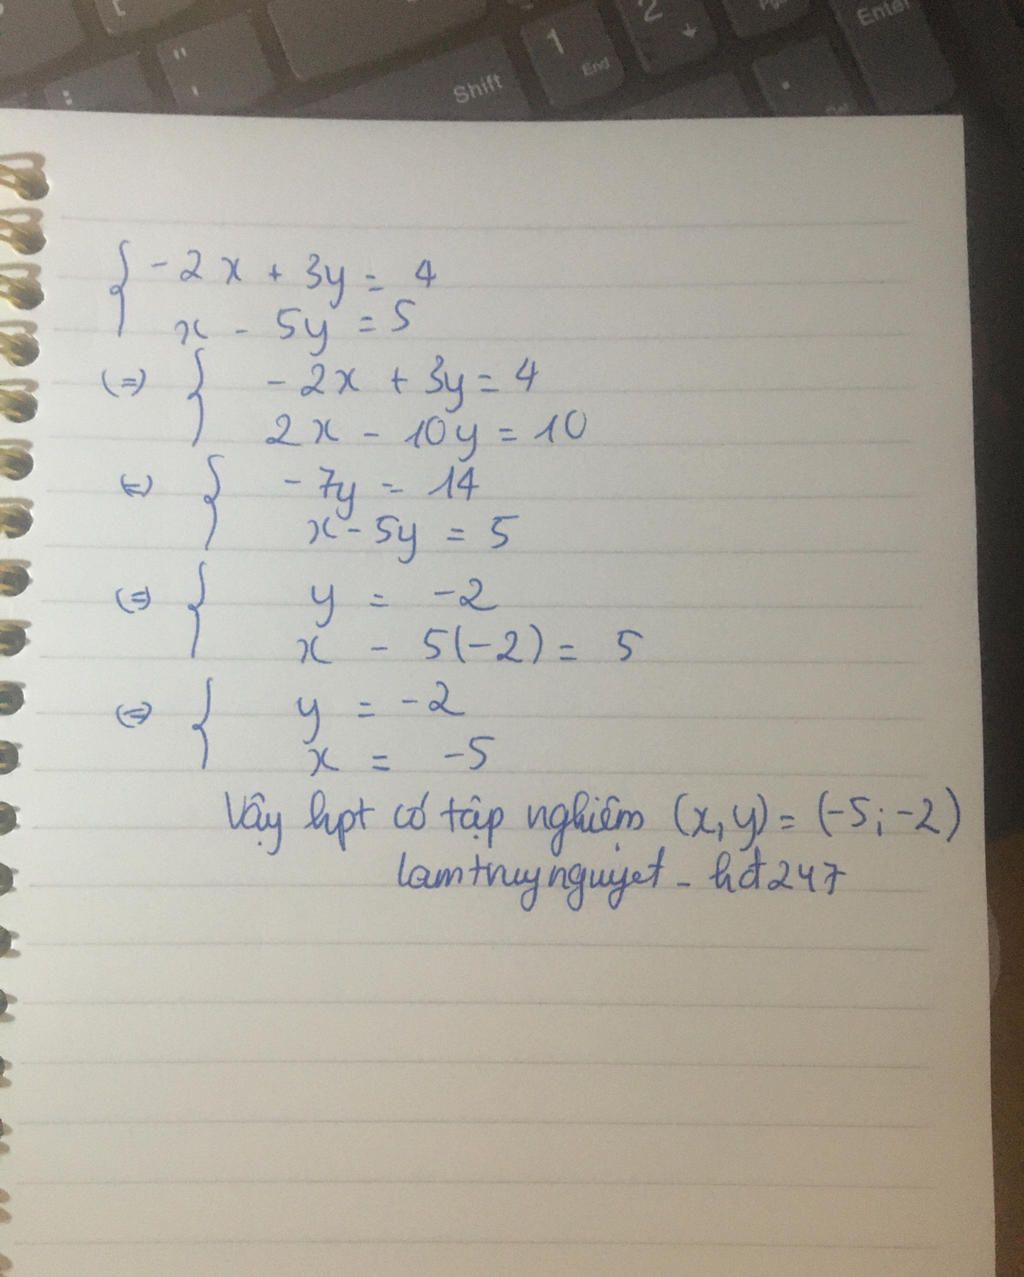 Shift
1
End
2
Enter
{ -2x + 3y = 4
x - 5y = 5
(=) { -2x + 3y = 4
2x - 10y = 10
(=) { -7y = 14
x - 5y = 5
(=) { y = -2
x - 5(-2) = 5
(=) { y = -2
x = -5
Vậy hpt có tập nghiệm (x,y) = (-5; -2)
lamthuynguyet - hđ247